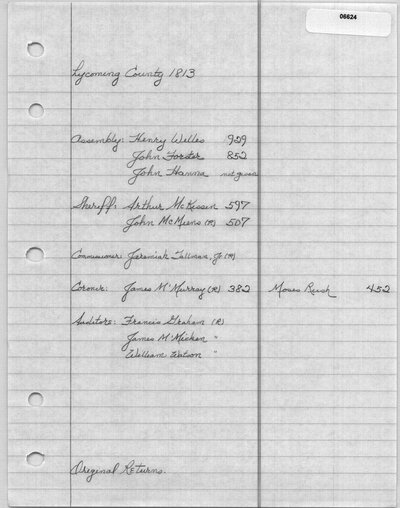 06624
Lycoming County 1813
Assembly: Henry Welles 929
John Forster 852
John Hanna not given
Sheriff: Arthur McKissen 597
John McMeens (R) 507
Commissioner: Jeremiah Tallman, Jr (R)
Coroner: James M'Murray (R) 382 Moses Rush 452
Auditors: Francis Graham (R)
James M'Micken "
William Watson "
Original Returns.